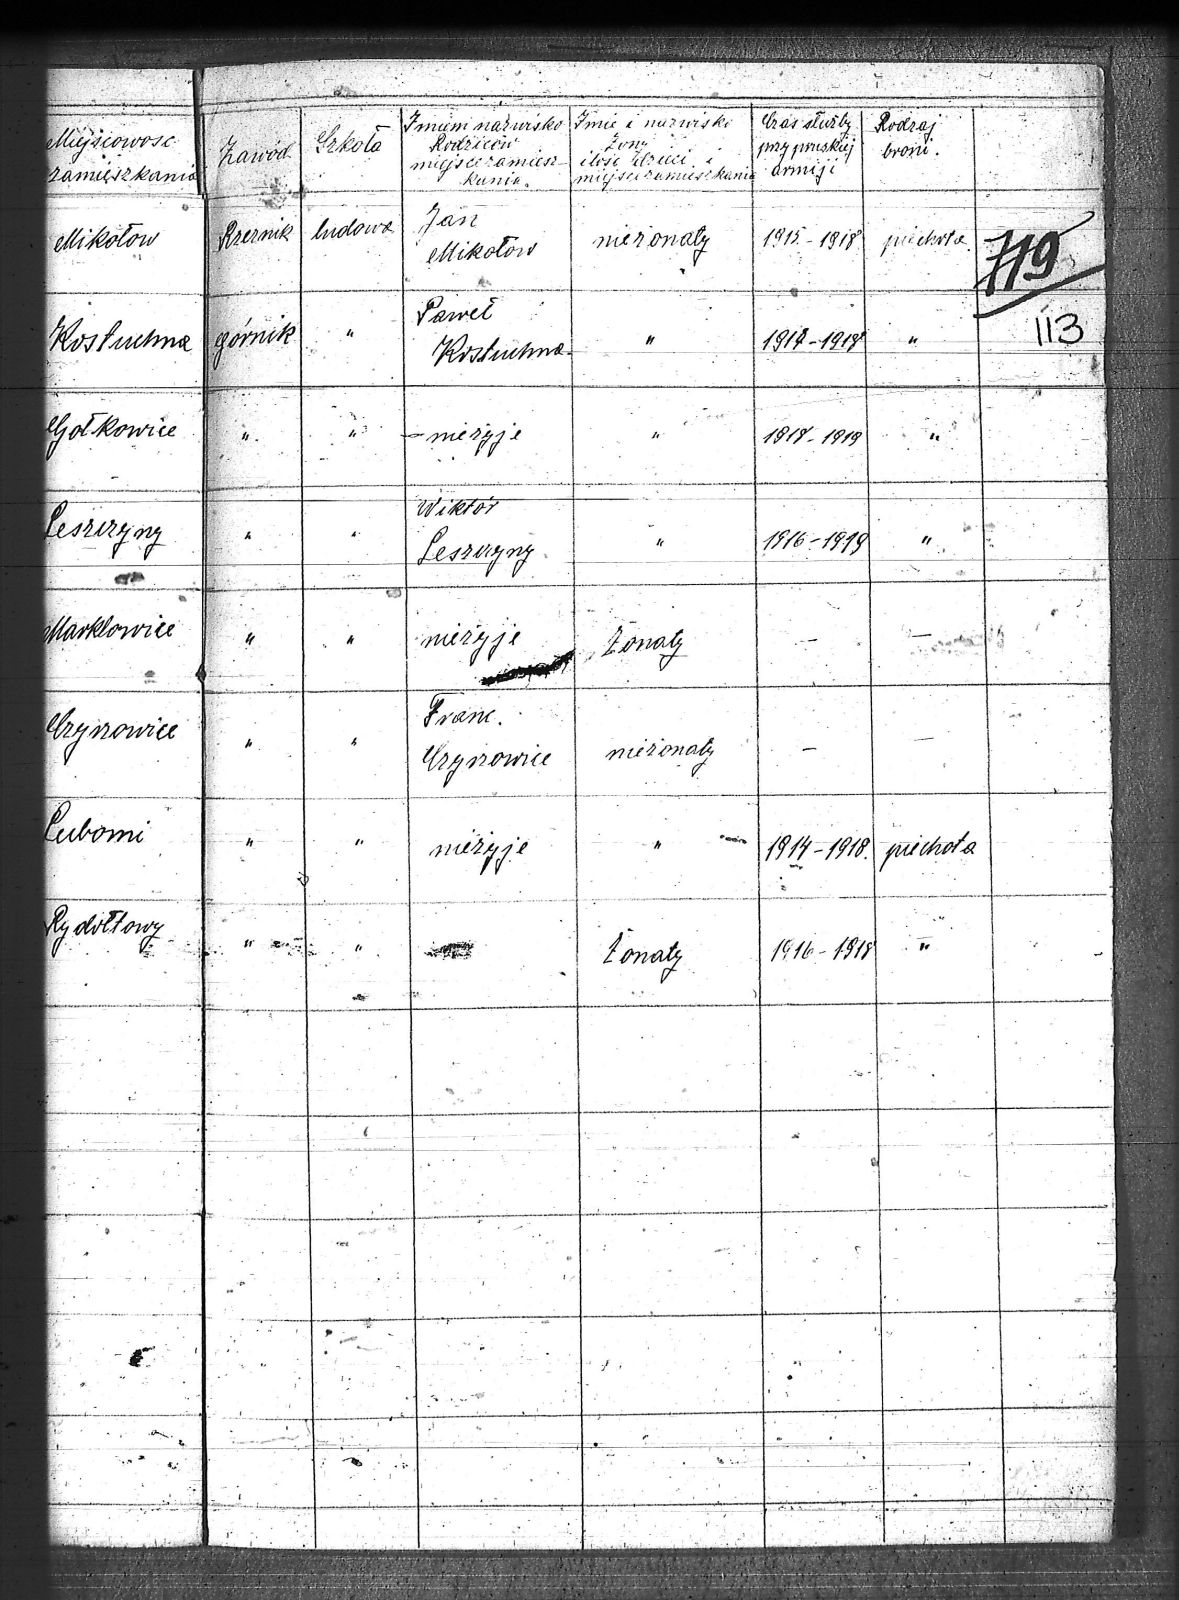 Miejscowość zamieszkania | Zawód | Szkoła | Imieni nazwisko Rodziców miejscezamiesz- kania. | Imie i nazwisko Żony ilość dzieci i miejscezamieszkania | Czas służby przy pruskiej armiji | Rodzaj broni.
Mikołow | Rzeznik | ludowa | Jan Mikołow | nieżonaty | 1915-1918 | piechota | 719
Kostuchna | górnik | " | Paweł Kostuchna | " | 1918-1918 | " | 113
Gołkowice | " | " | - nieżyje | " | 1918-1919 | "
Leszczyny | " | " | Wiktór Leszczyny | " | 1916-1919 | "
Marklowice | " | " | nieżyje | Żonaty | - | -
Czyżowice | " | " | Franc. Czyżowice | nieżonaty | - | -
Lubomi | " | " | nieżyje | " | 1914-1918. | piechota
Rydołtowy | " | " | Żonaty | 1916-1918 | "